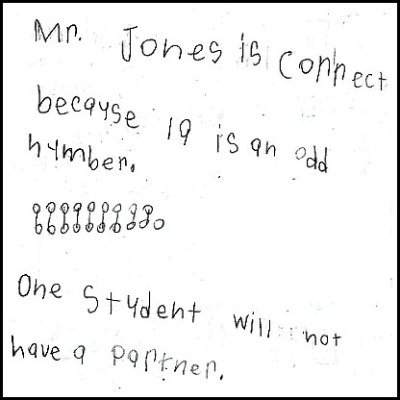 Mr. Jones is connect
because 19 is an odd
number.
One student will not
have a partner.